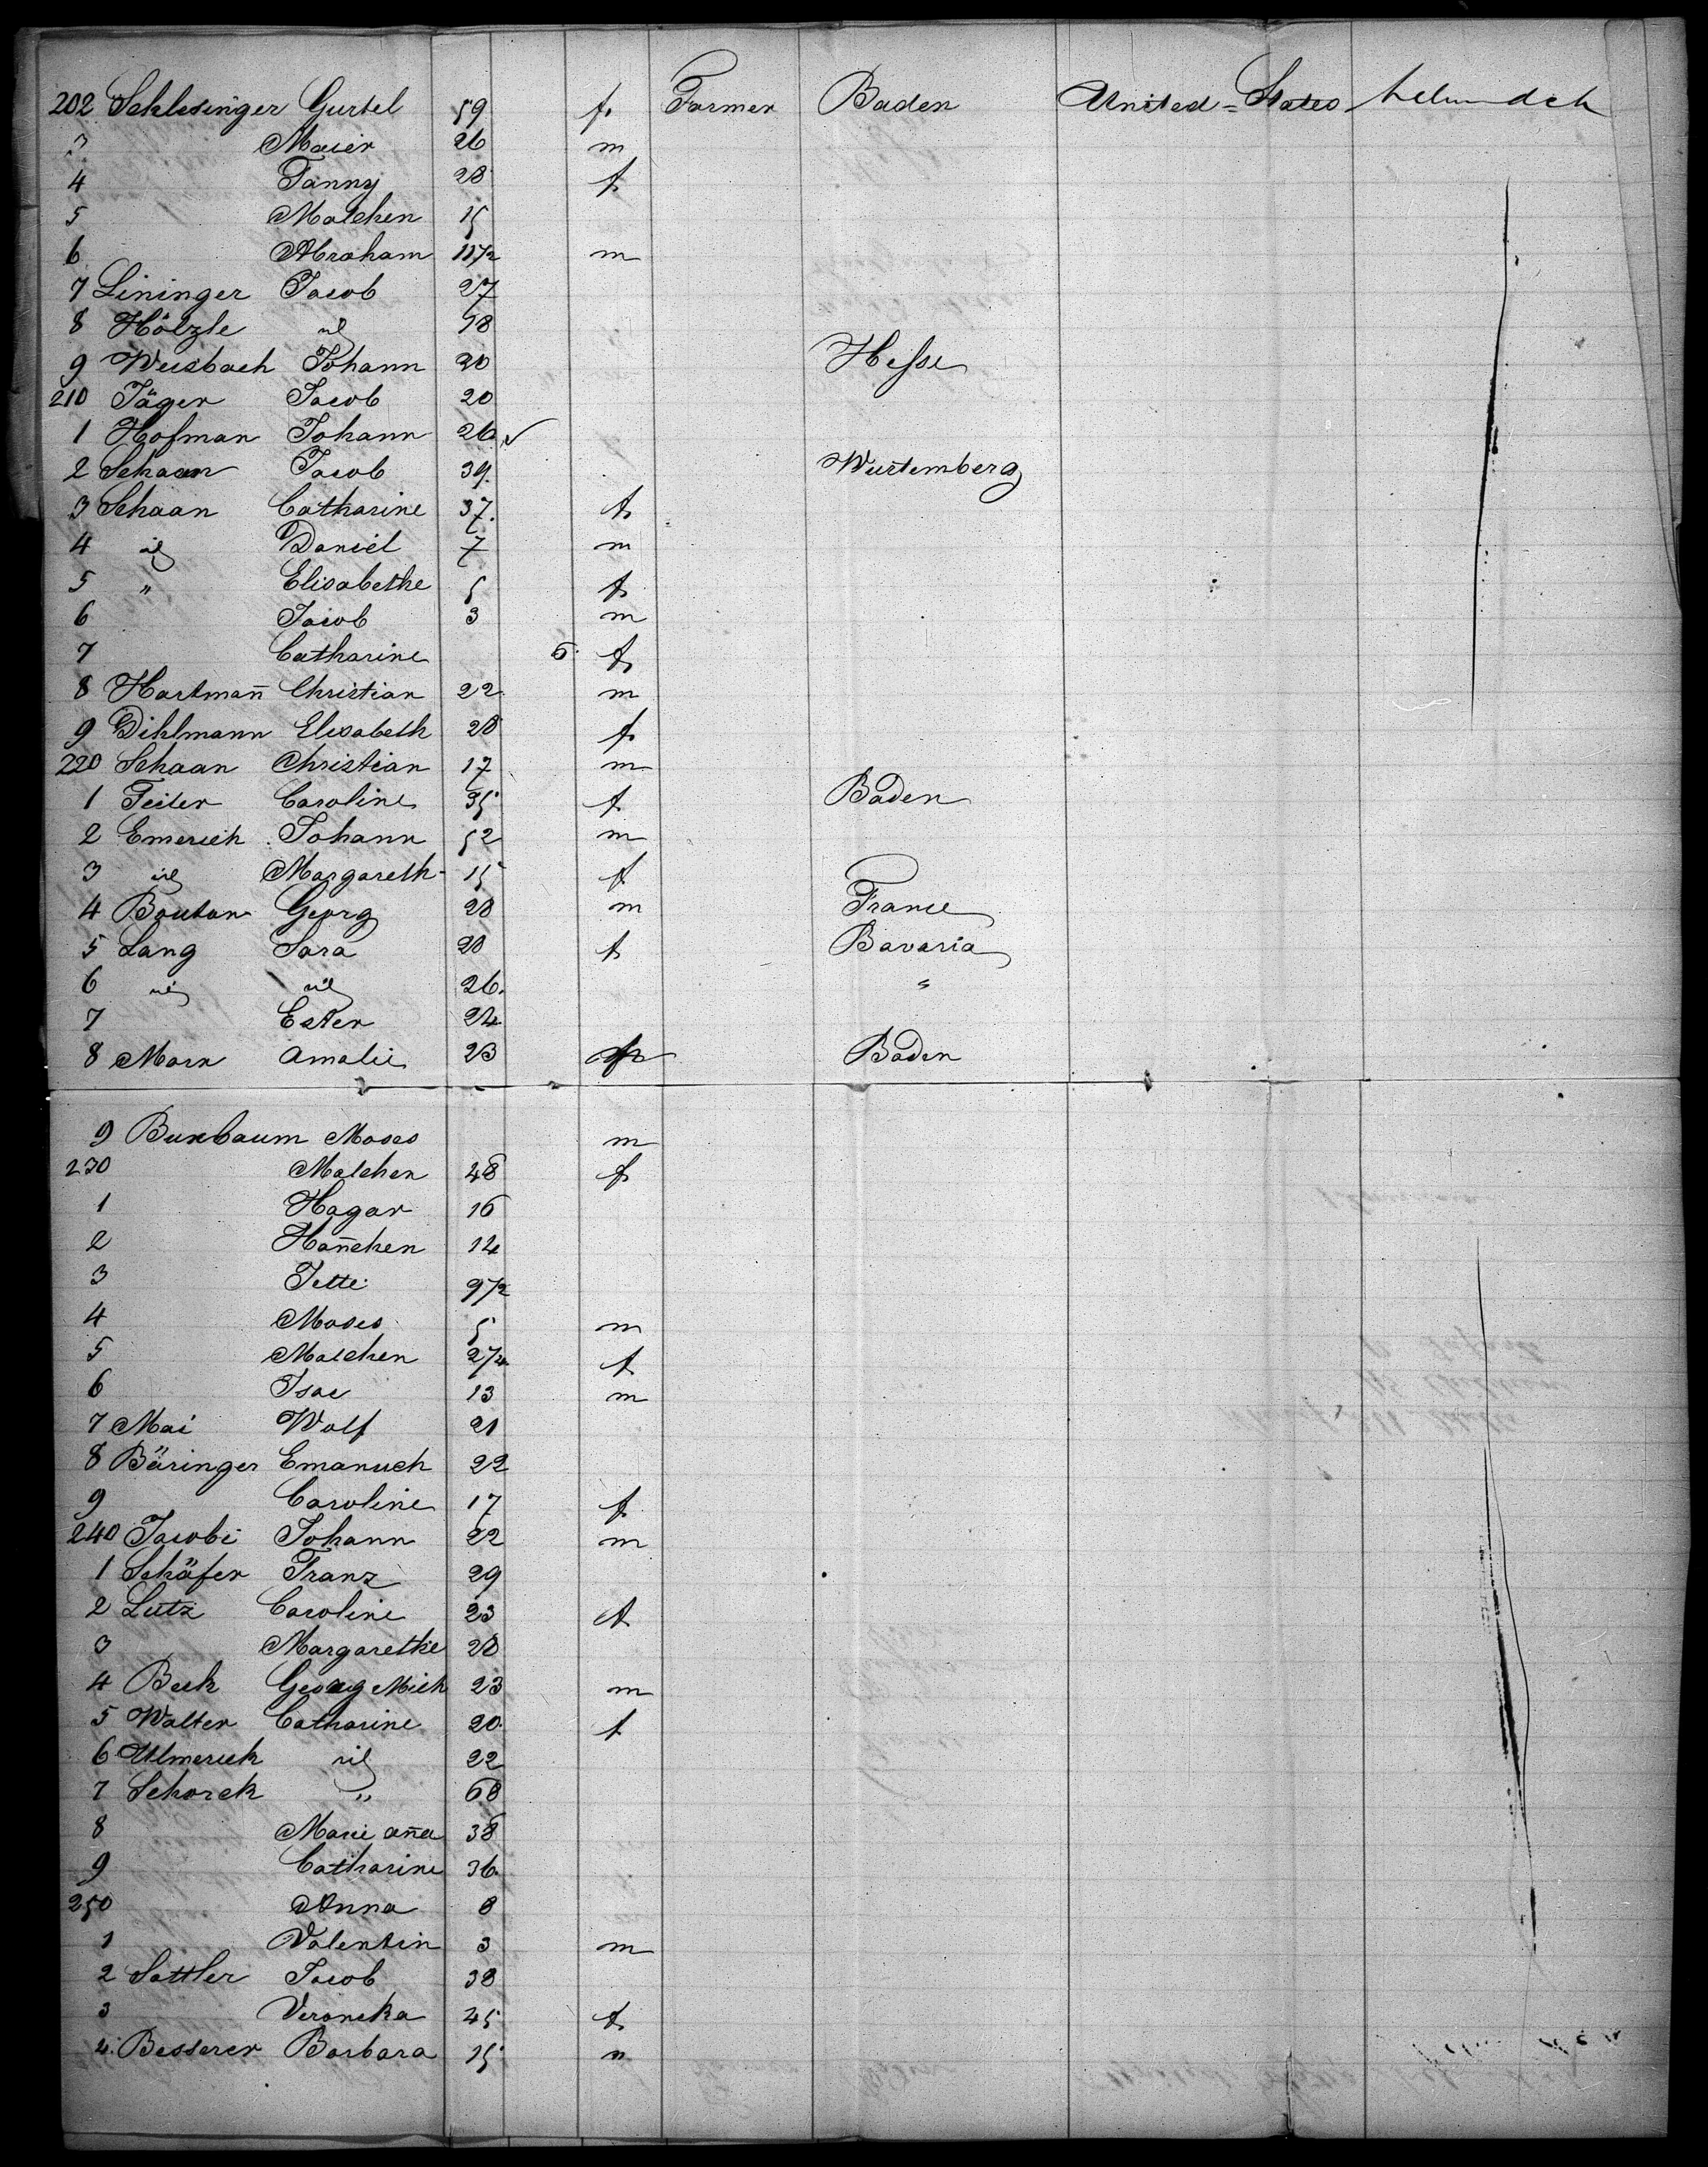 202 Schlesinger Gurtel 59 f. Farmer Baden United=States
3 Maier 26 m
4 Fanny 28 f.
5 Malchen 15
6 Abraham 11 1/2 m
7 Lininger Jacob 27
8 Hölzle id 18
9 Weisbach Johann 20 Hesse
210 Jäger Jacob 20
1 Hofman Johann 26
2 Schaan Jacob 39. Würtemberg
3 Schaan Catharine 37. f.
4 id Daniel 7 m
5 " Elisabethe 5 f.
6 Jacob 3 m
7 Catharine 6. f.
8 Hartmañ Christian 22. m
9 Dihlmann Elisabeth 28 f.
220 Schaan Christian 17 m
1 Feiler Caroline 35 f. Baden
2 Emerich Johann 52 m
3 id Margareth 15 f.
4 Bouton Georg 28 m France
5 Lang Sara 20 f. Bavaria
6 id id 26. "
7 Ester 24
8 Marx Amalie 23 f. Baden
9 Buxbaum Moses m
230 Malchen 48 f.
1 Hagar 16
2 Hañchen 12
3 Jette 9 1/2
4 Moses 5 m
5 Malchen 2 1/2 f.
6 Isac 13 m
7 Mai Wolf 21
8 Bäringer Emanuch 22
9 Caroline 17 f.
240 Jacobi Johann 22 m
1 Schäfer Franz 29
2 Lutz Caroline 23 f.
3 Margarethe 28
4 Beck Georg Mich 23 m
5 Walter Catharine 20. f
6 Ulmerich id 22
7 Schorck " 68
8 Marie aña 38
9 Catharine 36.
250 Anna 8
1 Valentin 3 m
2 Sattler Jacob 38
3 Veronika 45 f.
4. Besserer Barbara 15